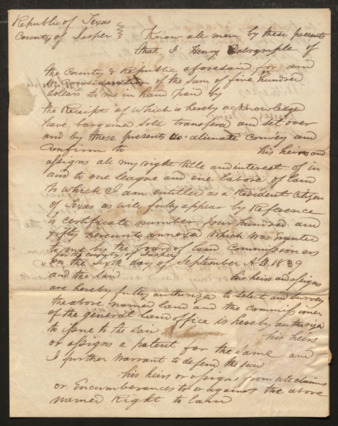 Republic of Texas
County of Jasper } Know all men by these presents
that I Henry Dalrymple of
the County & Republic aforesaid for and
in Consideration of the sum of five hundred
dollars to me in hand paid by
the Receipt of which is hereby acknowledge
have bargained Sold transfered and set over
and by these presents do alienate Convey and
Confirm to his heirs and
assigns all my right title and interest of in
and to one league and one labor of land
to which I am entitled as a Resident Citizen
of Texas as will fully appear by Reference
to certificate number four hundred and
fifty annexed which was granted
to me by the board of land Commissioners
for the County of Jasper
on the Sixth day of September A.D. 1839
and the said his heirs and assigns
are hereby fully authorized to select and survey
the above named land and the commissioner
of the general land office is hereby authorized
to issue to the said his heirs
or assigns a patent for the same and
I further warrant to defend the said
his heirs or assigns from all claims
or Encumberances to or against the above
named Right to land